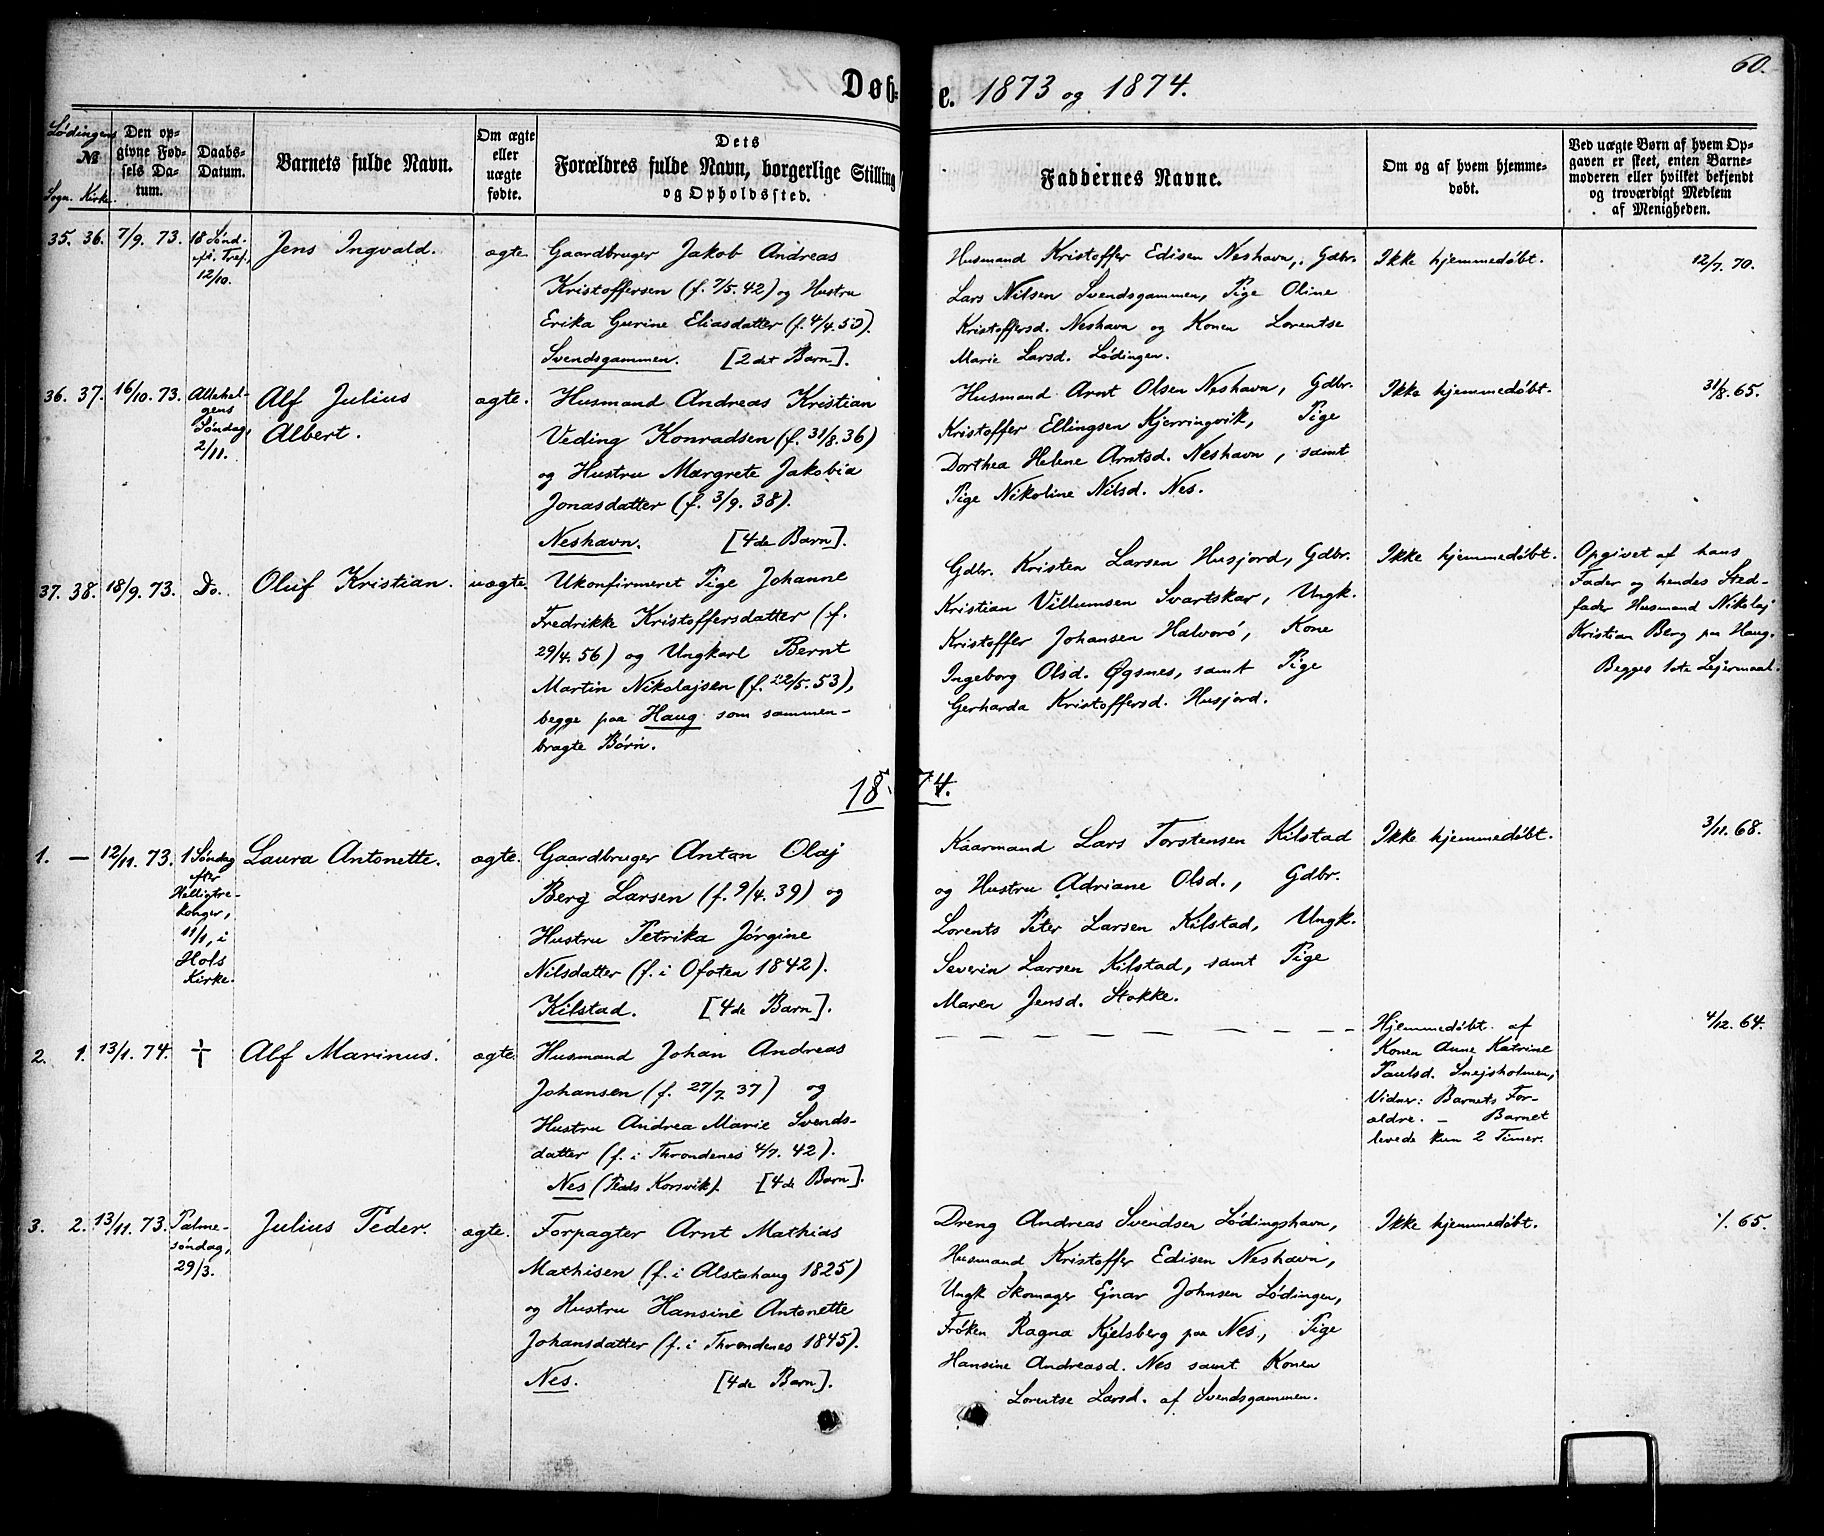 Døb=
e. 1873 og 1874.
60.
Lødingens
№
Sogn. Kirke.
Den op-
givne Fød-
sels Da-
tum.
Daabs-
Datum.
Barnets fulde Navn.
Om ægte
eller
uægte
fødte.
Dets
Forældres fulde Navn, borgerlige Stilling
og Opholdssted.
Faddernes Navne.
Om og af hvem hjemme-
døbt.
Ved uægte Børn af hvem Op-
gaven er skeet, enten Barne-
moderen eller hvilket bekjendt
og troværdigt Medlem
af Menigheden.
35. 36.
7/9. 73.
18 Sønd.
eft. Tref.,
12/10.
Jens Ingvald.
ægte.
Gaardbruger Jakob Andreas
Kristoffersen (f. 7/5. 42) og Hustru
Erika Gurine Eliasdatter (f. 4/4. 53).
Svendsgammen. [2det Barn].
Husmand Kristoffer Edisen Neshavn, Gdbr.
Lars Nilsen Svendsgammen, Pige Oline
Kristoffersd. Neshavn og Konen Lorentse
Marie Larsd. Lødingen.
Ikke hjemmedøbt.
12/7. 70.
36. 37.
16/10. 73.
Allehel-
gens
Søndag,
2/11.
Alf Julius
Albert.
ægte.
Husmand Andreas Kristian
Veding Konradsen (f. 31/8. 36)
og Hustru Margrete Jakobia
Jonasdatter (f. 3/9. 38).
Neshavn. [4de Barn].
Husmand Arnt Olsen Neshavn, Gdbr.
Kristoffer Ellingsen Kjerringvik, Pige
Dorthea Helene Arntsd. Neshavn, samt
Pige Nikoline Nilsd. Nes.
Ikke hjemmedøbt.
31/8. 65.
37. 38.
18/9. 73.
Do.
Oluf Kristian.
uægte.
Ukonfirmeret Pige Johanne
Fredrikke Kristoffersdatter (f.
29/4. 56) og Ungkarl Bernt
Martin Nikolajsen (f. 22/5. 53),
begge paa Haug som sammen-
bragte Børn.
Gdbr. Kristen Larsen Husjord, Gdbr.
Kristian Villumsen Svartskar, Ungk.
Kristoffer Johansen Halvorø, Kone
Ingeborg Olsd. Øgsnes, samt Pige
Gerharda Kristoffersd. Husjord.
Ikke hjemmedøbt.
Opgivet af hans
Fader og hendes Sted-
fader Husmand Nikolaj
Kristian Berg paa Haug.
Begges 1ste Lejermaal.
1874.
1. —
12/11. 73.
1 Søndag
efter
Helligtre-
konger,
11/1, i
Hols
Kirke.
Laura Antonette.
ægte.
Gaardbruger Anton Olaj
Berg Larsen (f. 9/4. 39) og
Hustru Petrika Jørgine
Nilsdatter (f. i Ofoten 1842).
Kilstad. [4de Barn].
Kaarmand Lars Torstensen Kilstad
og Hustru Adriane Olsd., Gdbr.
Lorents Peter Larsen Kilstad, Ungk.
Severin Larsen Kilstad, samt Pige
Maren Jensd. Stokke.
Ikke hjemmedøbt.
3/11. 68.
2. 1.
13/1. 74.
†
Alf Marinus.
ægte.
Husmand Johan Andreas
Johansen (f. 27/7. 37) og
Hustru Andrea Marie Svends-
datter (f. i Throndenes 4/7. 42).
Nes (Plads Korsvik). [4de Barn].
— — — — — — — — — —
Hjemmedøbt af
Konen Anne Katrine
Paulsd. Snejsholmen,
Vidner: Barnets For-
ældre. — Barnet
levede kun 2 Timer.
4/12. 64.
3. 2.
13/11. 73.
Palme-
søndag,
29/3.
Julius Peder.
ægte.
Forpagter Arnt Mathias
Mathisen (f. i Alstahaug 1825)
og Hustru Hansine Antonette
Johansdatter (f. i Throndenes 1845).
Nes. [4de Barn].
Dreng Andreas Svendsen Lødingshavn,
Husmand Kristoffer Edisen Neshavn,
Ungk Skomager Ejnar Johnsen Lødingen,
Frøken Ragna Kjelsberg paa Nes, Pige
Hansine Andreasd. Nes samt Konen
Lorentse Larsd. af Svendsgammen.
Ikke hjemmedøbt.
/. 65.